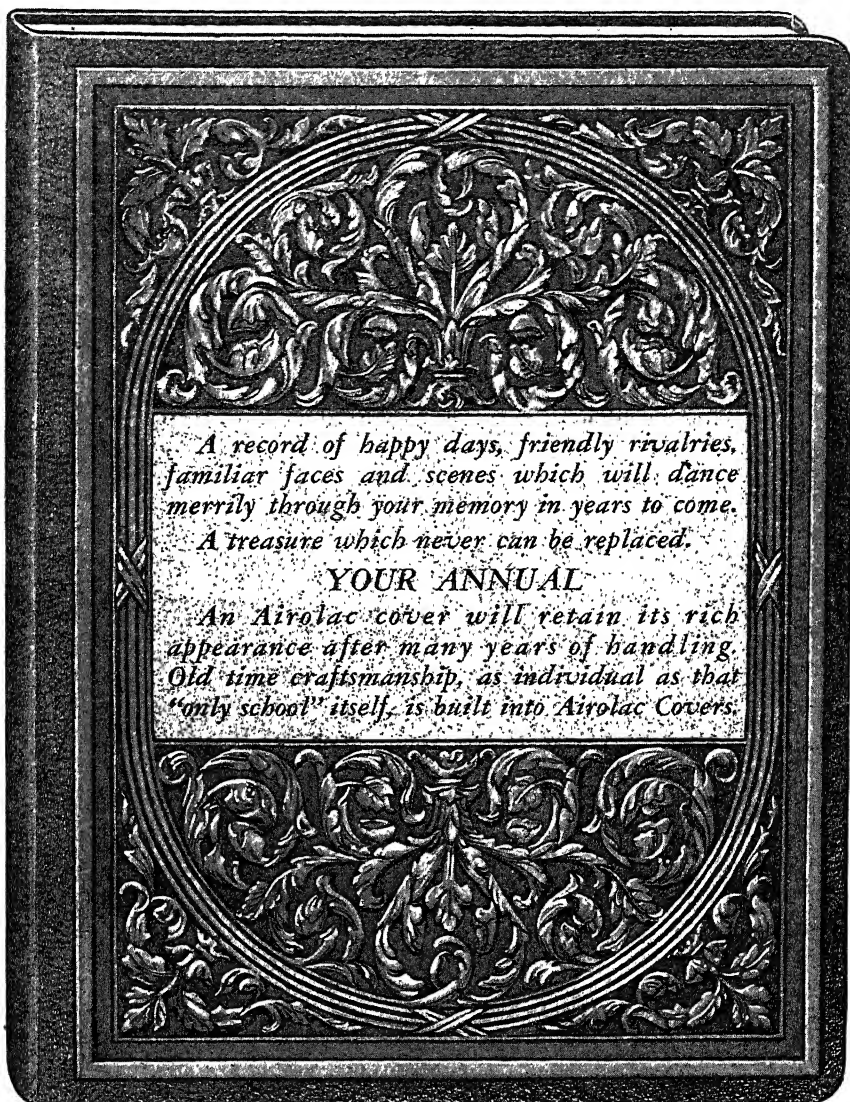 A record of happy days, friendly rivalries,
familiar faces and scenes which will dance
merrily through your memory in years to come.
A treasure which never can be replaced.
YOUR ANNUAL
An Airolac cover will retain its rich
appearance after many years of handling.
Old time craftsmanship, as individual as that
"only school" itself, is built into Airolac Covers.